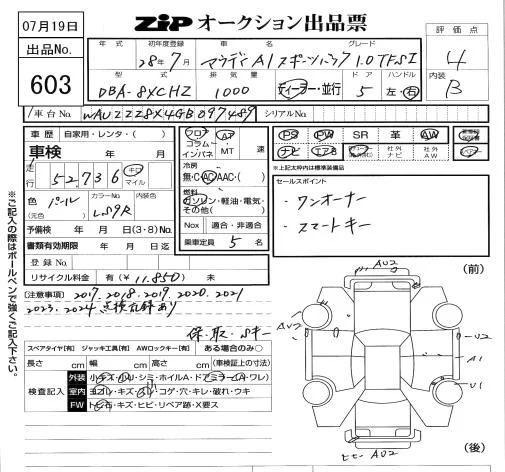 07月19日
ZiP オークション出品票
出品No.
603
評価点
4
内装
B
年式 初年度登録 車名 グレード
28年7月 アウディA1 スポーツバック 1.0TFSI
型式 排気量 ドア ハンドル
DBA-8XCHZ 1000 ディーラー・並行 5 左・右
車台No. WAUZZZ8X4GB097489 シリアルNo.
車歴 自家用・レンタ・( )
車検 年 月
走行 52,736 キロ マイル
色 パール カラーNo. LS9R 内装色
(元色)
予備検 年 月 日(3・8)No.
書類有効期限 年 月 日迄
登録No.
リサイクル料金 有(¥ 11.850) 未
フロア コラム インパネ
AT MT 速
冷房
無・C AC AAC・( )
燃料
ガソリン・軽油・電気・その他( )
Nox 適合・非適合
乗車定員 5 名
PS PW SR 革 AW
ナビ エアB 社外ナビ 社外AW
※上記太枠内は標準装備品
セールスポイント
・ワンオーナー
・スマートキー
[注意事項] 2017.2018.2019.2020.2021
2023.2024 点検記録あり
保.取.Sキー
スペアタイヤ[有] ジャッキ工具[有] AWロックキー[有] ある場合のみ○
長さ cm 幅 cm 高さ cm (車検証上の寸法)
検査記入
外装 小キズ・凹・シミ・ホイルA・ドアミラー(A・ワレ)
室内 ヨゴレ・キズ・スレ・コゲ・穴・キレ・破れ・ウキ
FW トビ石・キズ・ヒビ・リペア跡・X要ス
※ご記入の際はボールペンで強くご記入下さい。
(前)
AU2
AU2
U2
A1
U1
AU2
(後)